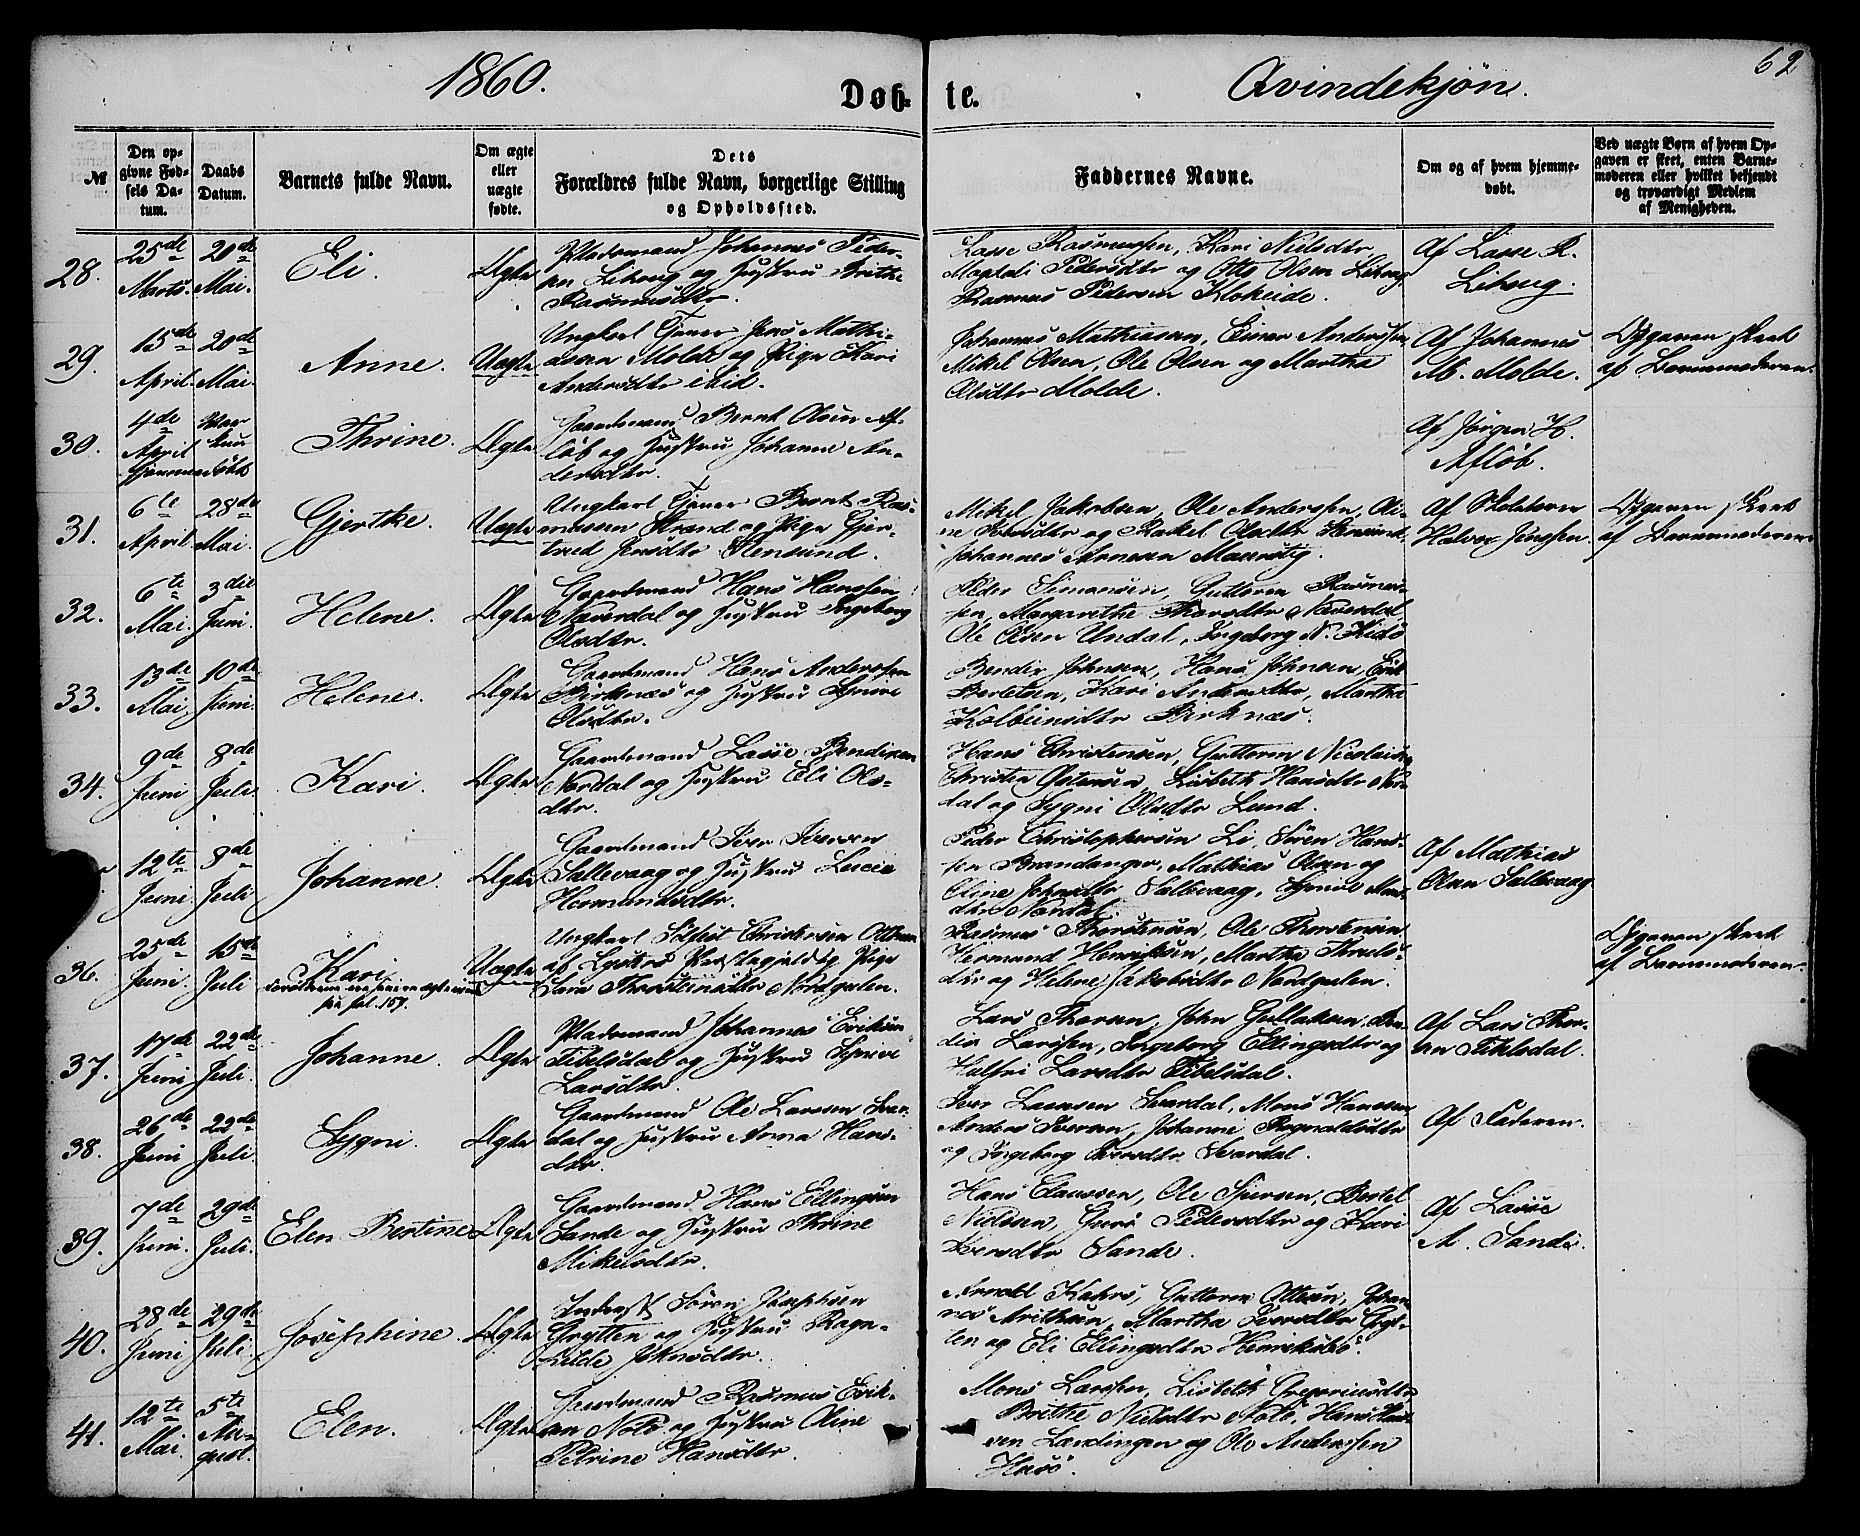 1860.
Døb-
te.
Qvindekjøn.
62
№
Den op-
givne Fød-
sels Da-
tum.
Daabs
Datum.
Barnets fulde Navn.
Om ægte
eller
uægte
fødte.
Dets
Forældres fulde Navn, borgerlige Stilling
og Opholdssted.
Faddernes Navne.
Om og af hvem hjemme-
døbt.
Ved uægte Børn af hvem Op-
gaven er skeet, enten Barne-
moderen eller hvilket bekjendt
og troværdigt Medlem
af Menigheden.
28.
25de
Marts.
20de
Mai.
Eli.
Ægte
Pladsmand Johannes Peder-
sen Lihoug og Hustru Brithe
Rasmusdtr.
Lasse Rasmussen, Kari Nielsdtr
Magtali Pedersdtr og Otto Olsen Lihoug
Rasmus Pedersen Klokeide.
Af Lasse R.
Lihoug.
29.
15de
April.
20de
Mai.
Anne.
Uægte
Ungkarl Tjener Jens Mathi-
assen Molde og Pige Kari
Andersdtr ibid.
Johannes Mathiassen, Einar Anderssen,
Mikel Olsen, Ole Olsen og Martha
Olsdtr Molde.
Af Johannes
M. Molde.
Opgaven skeet
af Barnemoderen.
30.
4de
April
hjemmedøbt
Thrine.
Ægte
Gaardmand Bernt Olsen Af-
løb og Hustru Johanne An-
dersdtr.
Af Jørgen H.
Afløb.
31.
6te
April
28de
Mai.
Gjertke.
Uægte
Ungkarl Tjener Bernt Ras-
mussen Strand og Pige Gjer-
trud Jensdtr Stensund.
Mikel Jakobsen, Ole Anderssen, Oli-
ne Pedersdtr og Rakel Olsdtr Stensund
Johannes Arnesen
Af Skolelærer
Halvor Jenssen.
Opgaven skeet
af Barnemoderen
32.
6te
Mai.
3die
Juni.
Helene.
Ægte
Gaardmand Hans Hanssen
Næverdal og Hustru Ingeborg
Olsdtr.
Peder Simonsen, Guttorm Rasmus-
sen, Margarethe Næverdal
Ole Olsen Undal, Ingeborg N.
33.
13de
Mai.
10de
Juni.
Helene.
Ægte
Gaardmand Hans Anderssen
Birknæs og Hustru Synøve
Olsdtr.
Bendix Johnsen, Hans Johnsen, Erik
Bertelsen, Kari Andersdtr, Martha
Kolbeinsdtr Birknæs.
34.
9de
Juni
8de
Juli
Kari.
Ægte
Gaardmand Lasse Bendixsen
Nordal og Hustru Eli Ols-
dtr.
Hans Christensen, Guttorm Nicolaisen
Christen Ostensen, Lisbeth Hansdtr Nor-
dal og Sygni Olsdtr Lund.
12te
Juni.
8de
Juli
Johanne.
Ægte
Gaardmand Iver Iversen
Sallevaag og Hustru Lucia
Hermundsdtr.
Peder Christophersen Li, Søren Hans-
sen Brandanger, Mathias Olsen og
Oline Johnsdtr Sallevaag, Synøve Mons-
dtr Nordal.
Af Mathias
Olsen Sallevaag
36.
25de
Juni.
15de
Juli
Kari
see fol. 157.
Uægte
Ungkarl Sølfest Christensen Ottum
af Lysters Præstegjeld og Pige
Sara Thorsteinsdtr Nordgulen.
Rasmus Thorstensen, Ole Thorstensen
Hermund Henriksen, Martha
dtr og Helene Jakobsdtr Nordgulen.
Opgaven skeet
af Barnemoderen.
37.
17de
Juni
22de
Juli.
Johanne.
Ægte
Pladsmand Johannes Eriksen
Tibelsdal og Hustru Synøve
Larsdtr.
Lars Thorsen, John Gullaksen, Ben-
dix Larssen, Ingeborg Ellingsdtr og
Halfri Larsdtr Tibelsdal.
Af Lars Thor-
sen Tibelsdal.
38.
26de
Juni
22de
Juli.
Sygni.
Ægte
Gaardmand Ole Larssen Svar-
dal og Hustru Anna Hans-
dtr.
Iver Larssen Svardal, Mons Hanssen
Anders Iversen, Johanne Rognaldsdtr
og Ingeborg Iversdtr Svardal.
Af Faderen.
39.
7de
Juni.
29de
Juli.
Elen Bertine
Ægte
Gaardmand Hans Ellingsen
Sande og Hustru Thrine
Mikkelsdtr.
Hans Claussen, Ole Sjursen, Bertel
Nielssen, Guro Pedersdtr og Kari
Iversdtr Sande.
Af Lasse
A. Sande.
40.
28de
Juni
29de
Juli.
Josephine.
Ægte
Inderst Søren Josephsen
Grytten og Hustru Ragn-
hilde Johnsdtr.
Arnold Kahrs, Guttorm Ottesen, Johan-
nes Arithsen, Martha Iversdtr Gryt-
ten og Eli Ellingsdtr Henriksbø.
41.
12te
Mai.
5te
Au-
gust.
Elen.
Ægte
Gaardmand Rasmus Erik-
sen Notø og Hustru Oline
Petrine Hansdtr.
Mons Larssen, Lisbeth Gregoriusdtr
Brithe Nielsdtr Notø, Hans
sen Lærdingen og Ole Anderssen
Husø.